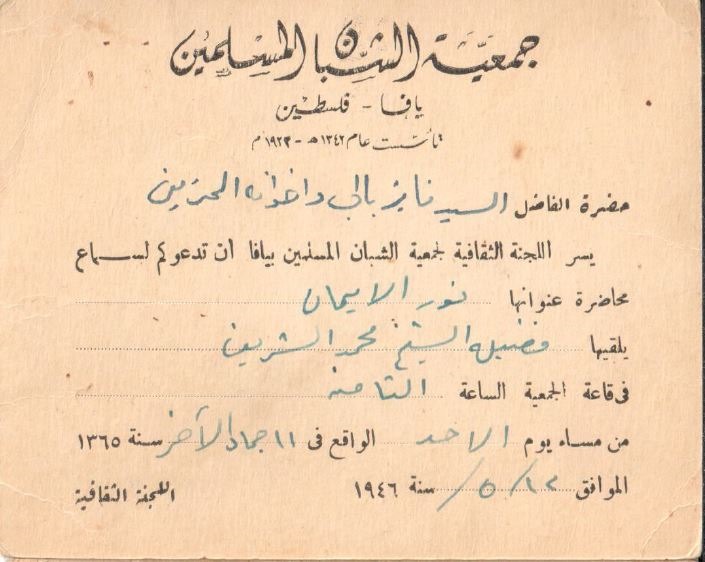 جمعيّة الشبّان المسلمين
يافا - فلسطين
تأسست عام ١٣٤٢ هـ - ١٩٢٣ م
حضرة الفاضل السيد فايز بالي واخوانه المحترمين
يسر اللجنة الثقافية لجمعية الشبان المسلمين بيافا أن تدعوكم لسماع
محاضرة عنوانها نور الايمان
يلقيها فضيلة الشيخ محمد الشريف
في قاعة الجمعية الساعة الثامنة
من مساء يوم الاحد الواقع في ١١ جماد الآخر سنة ١٣٦٥
الموافق ١٢/٥/ سنة ١٩٤٦ اللجنة الثقافية